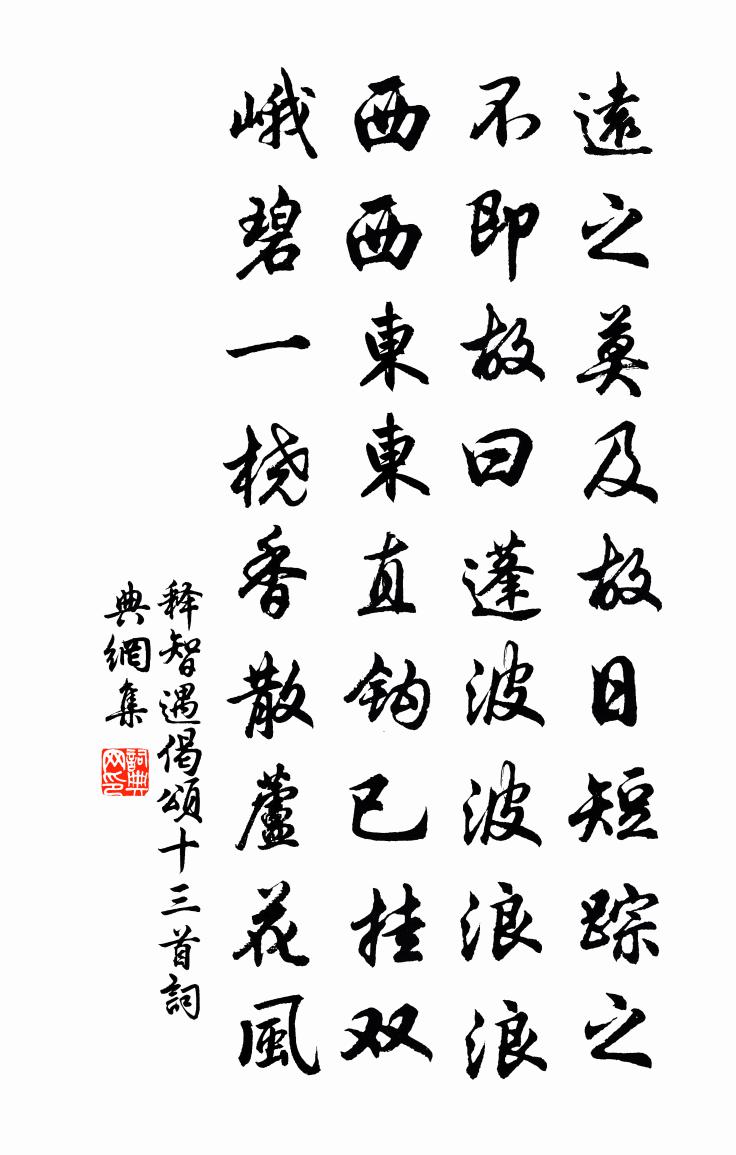 遠之莫及故日短踪之
不即故曰蓬波波浪浪
西西東東直钩已挂双
峨碧一桡香散蘆花風
释智遇偈頌十三首詞
典網集
詞典网印